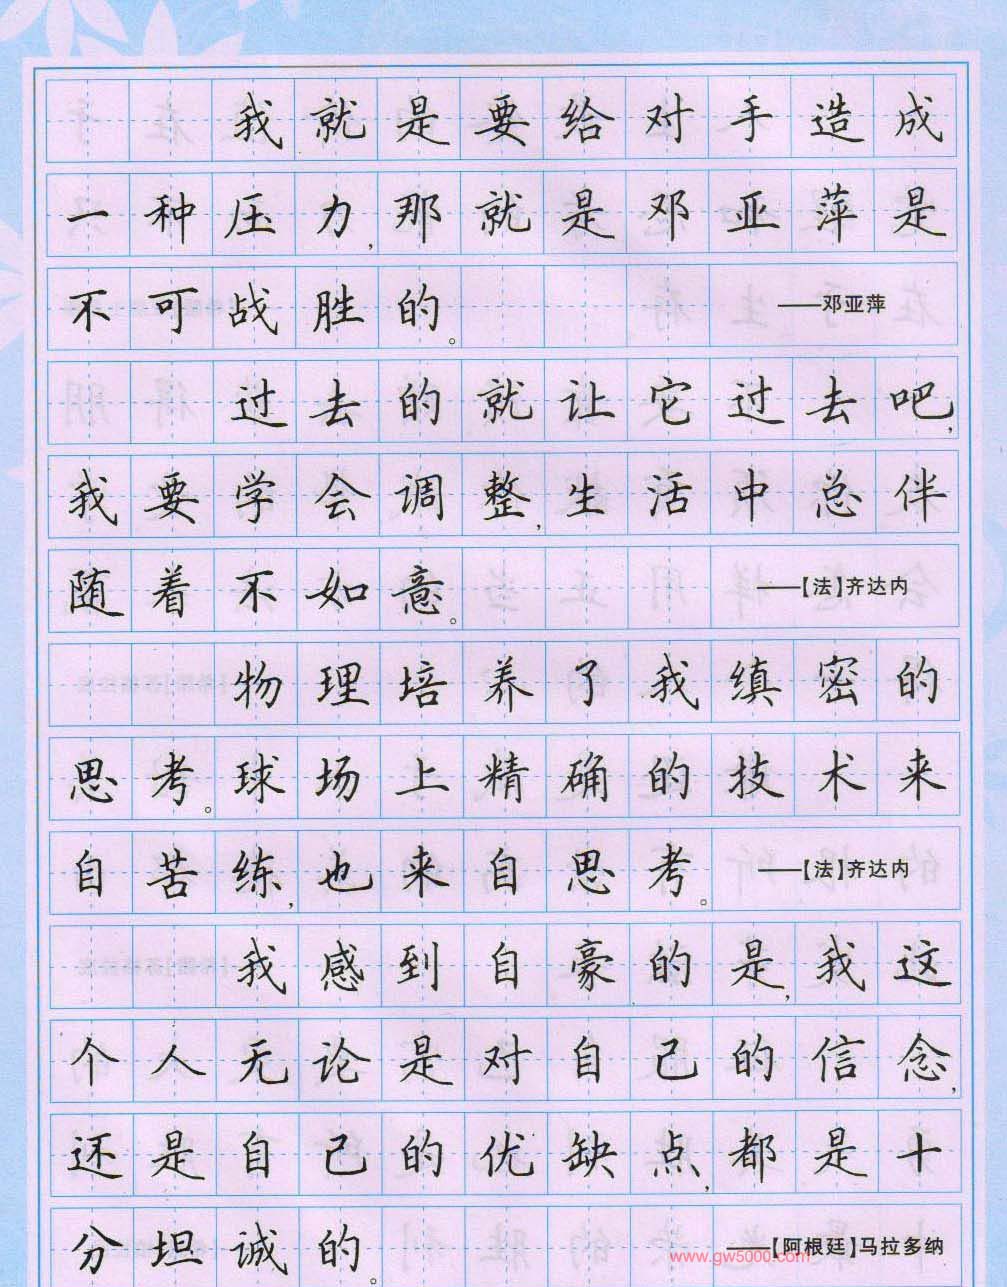 我就是要给对手造成
一种压力,那就是邓亚萍是
不可战胜的。 ——邓亚萍
过去的就让它过去吧,
我要学会调整,生活中总伴
随着不如意。 ——【法】齐达内
物理培养了我缜密的
思考。球场上精确的技术来
自苦练,也来自思考。 ——【法】齐达内
我感到自豪的是,我这
个人无论是对自己的信念,
还是自己的优缺点,都是十
分坦诚的。 ——【阿根廷】马拉多纳
www.gw5000.com